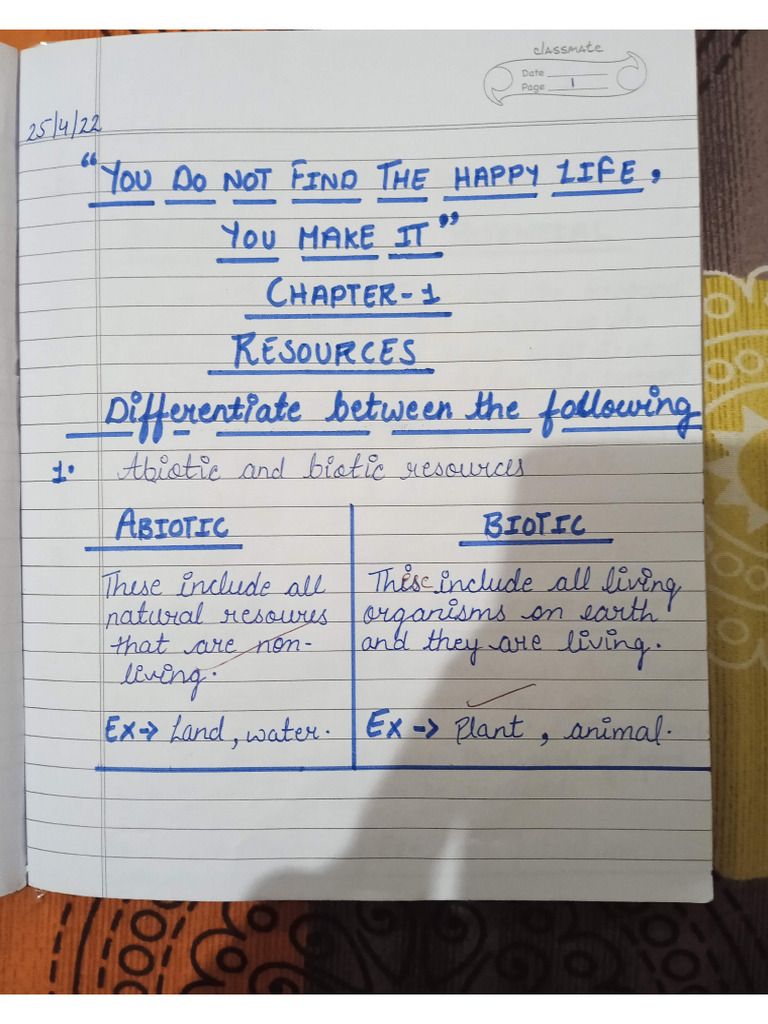 classmate
Date
Page 1
25/4/22
"YOU DO NOT FIND THE HAPPY LIFE,
YOU MAKE IT"
CHAPTER-1
RESOURCES
Differentiate between the following
1. Abiotic and biotic resources
ABIOTIC BIOTIC
These include all
natural resoures
that are non-
living.
Ex→ Land, water.
These include all living
organisms on earth
and they are living.
Ex → Plant, animal.